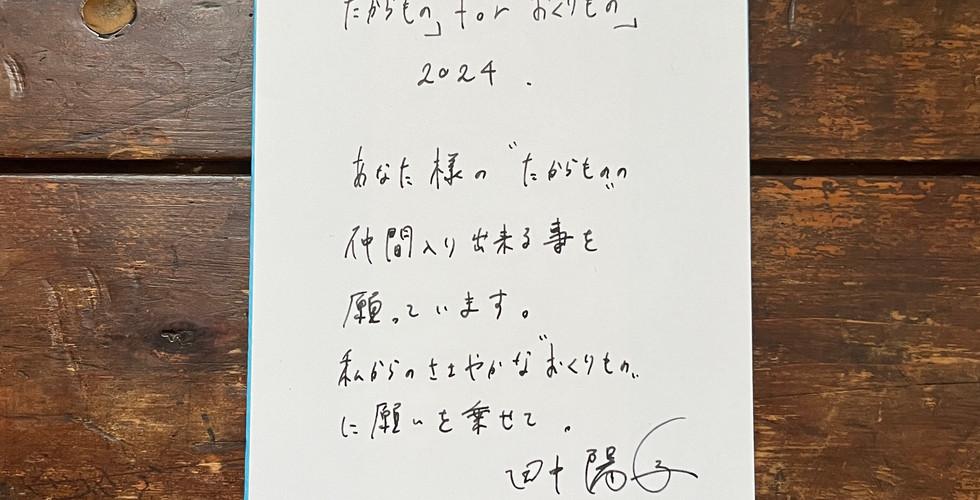 たからもの」for おくりもの」
2024.
あなた様の〝たからもの〟の
仲間入り出来る事を
願っています。
私からのささやかな〝おくりもの〟
に願いを乗せて。
田中陽子